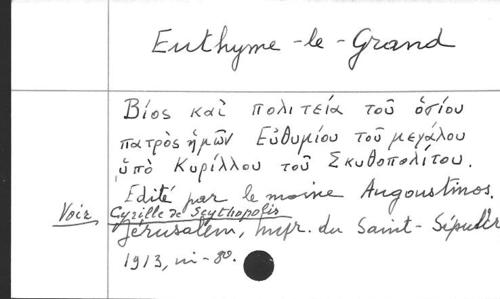 Euthyme-le-Grand
Βίος καὶ πολιτεία τοῦ ὁσίου
πατρὸς ἡμῶν Εὐθυμίου τοῦ μεγάλου
ὑπὸ Κυρίλλου τοῦ Σκυθοπολίτου.
Edité par le moine Augoustinos.
Voir Cyrille de Scythopolis
Jérusalem, Impr. du Saint-Sépulcre
1913, in-8o.